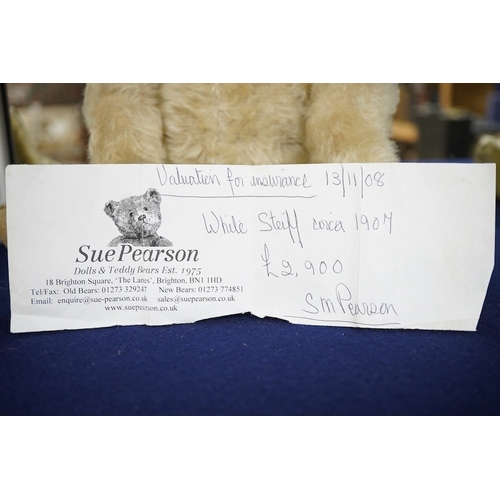 Valuation for insurance 13/11/08
White Steiff circa 1907
£2,900
SM Pearson
Sue Pearson
Dolls & Teddy Bears Est. 1975
18 Brighton Square, 'The Lanes', Brighton, BN1 1HD
Tel/Fax: Old Bears: 01273 329247 New Bears: 01273 774851
Email: enquire@sue-pearson.co.uk sales@sue-pearson.co.uk
www.suepearson.co.uk